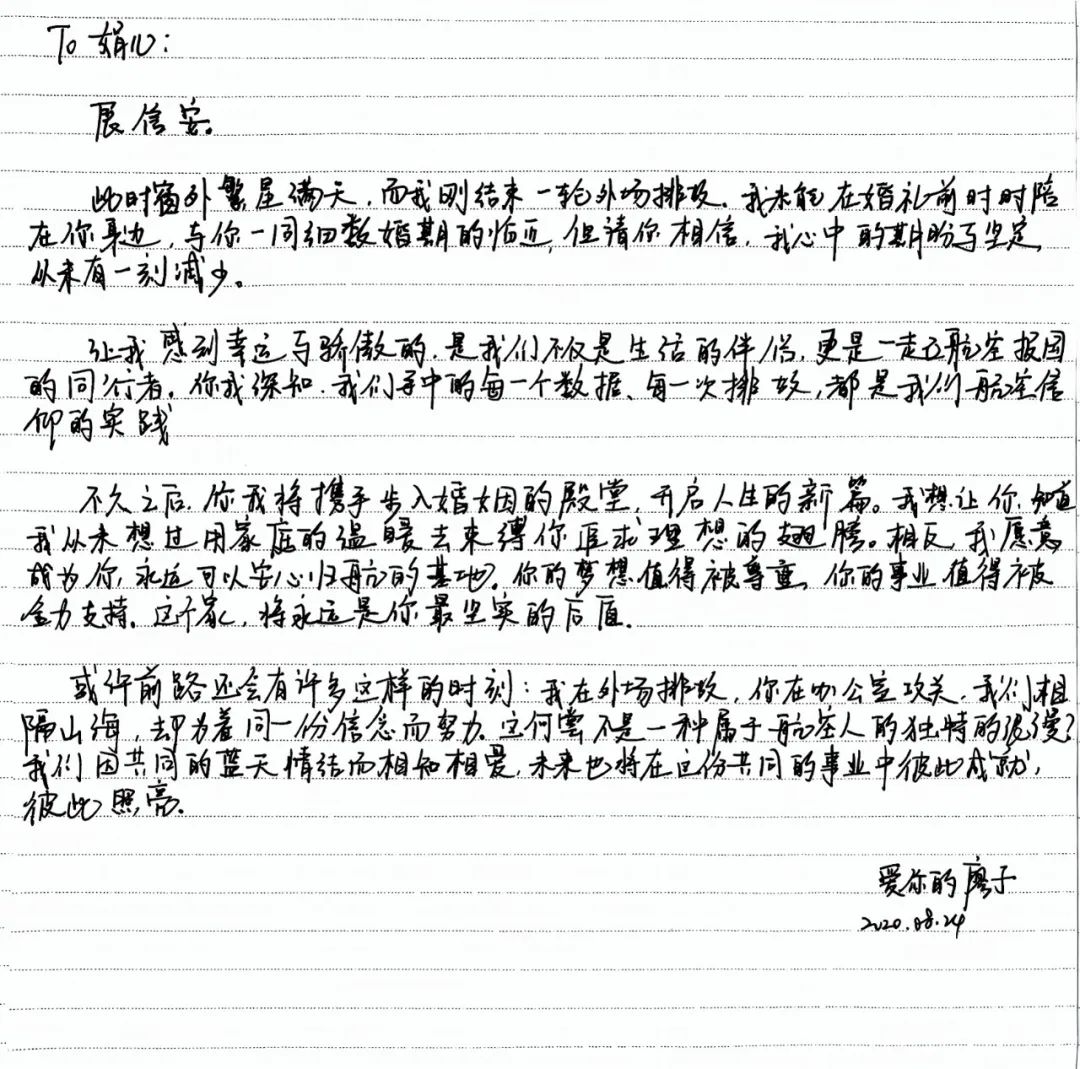 To 娟儿:
展信安。
此时窗外繁星满天，而我刚结束一轮外场排故。我未能在婚礼前时时陪
在你身边，与你一同细数婚期的临近，但请你相信，我心中的期盼与坚定，
从未有一刻减少。
让我感到幸运与骄傲的，是我们不仅是生活的伴侣，更是航空报国
的同行者。你我深知，我们手中的每一个数据、每一次排故，都是我们航空信
仰的实践
不久之后，你我将携手步入婚姻的殿堂，开启人生的新篇。我想让你知道
我从未想过用家庭的温暖去束缚你追求理想的翅膀。相反，我愿意
成为你永远可以安心归航的基地。你的梦想值得被尊重，你的事业值得被
全力支持。这个家，将永远是你最坚实的后盾。
或许前路还会有许多这样的时刻：我在外场排故，你在办公室攻关，我们相
隔山海，却为着同一份信念而努力。这何尝不是一种属于航空人的独特的浪漫？
我们因共同的蓝天情结而相知相爱，未来也将在这份共同的事业中彼此成就，
彼此照亮。
爱你的廖子
2020.08.24